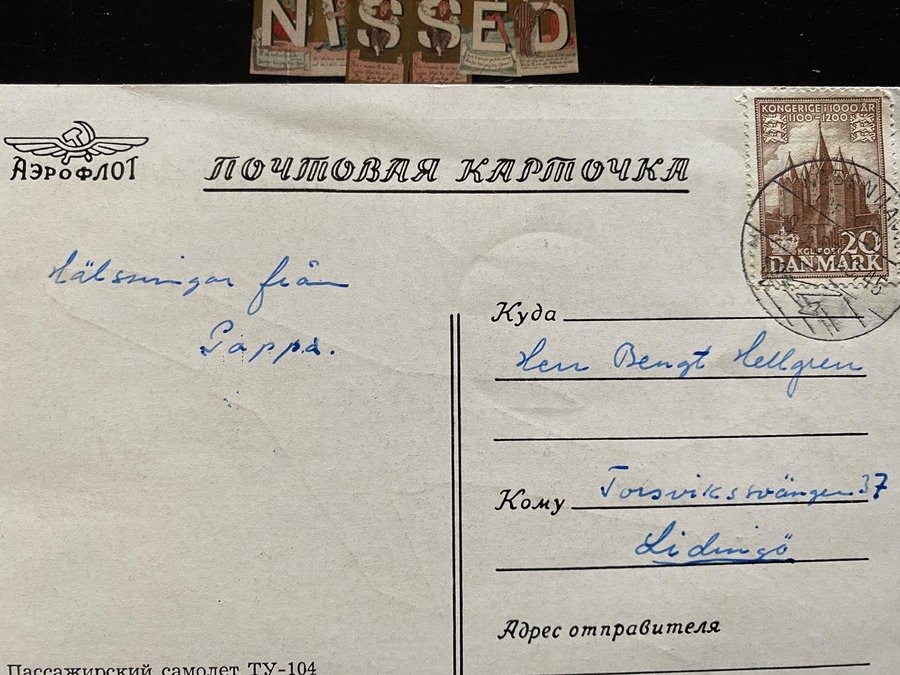 NISSED
KONGERIGE I 1000 ÅR
1100-1200
KGL POST 20
DANMARK
АЭРОФЛОТ
ПОЧТОВАЯ КАРТОЧКА
Hälsningar från
Pappa.
Куда
Herr Bengt Hellgren
Кому Torsviksvängen 37
Lidingö
Адрес отправителя
Пассажирский самолет ТУ-104